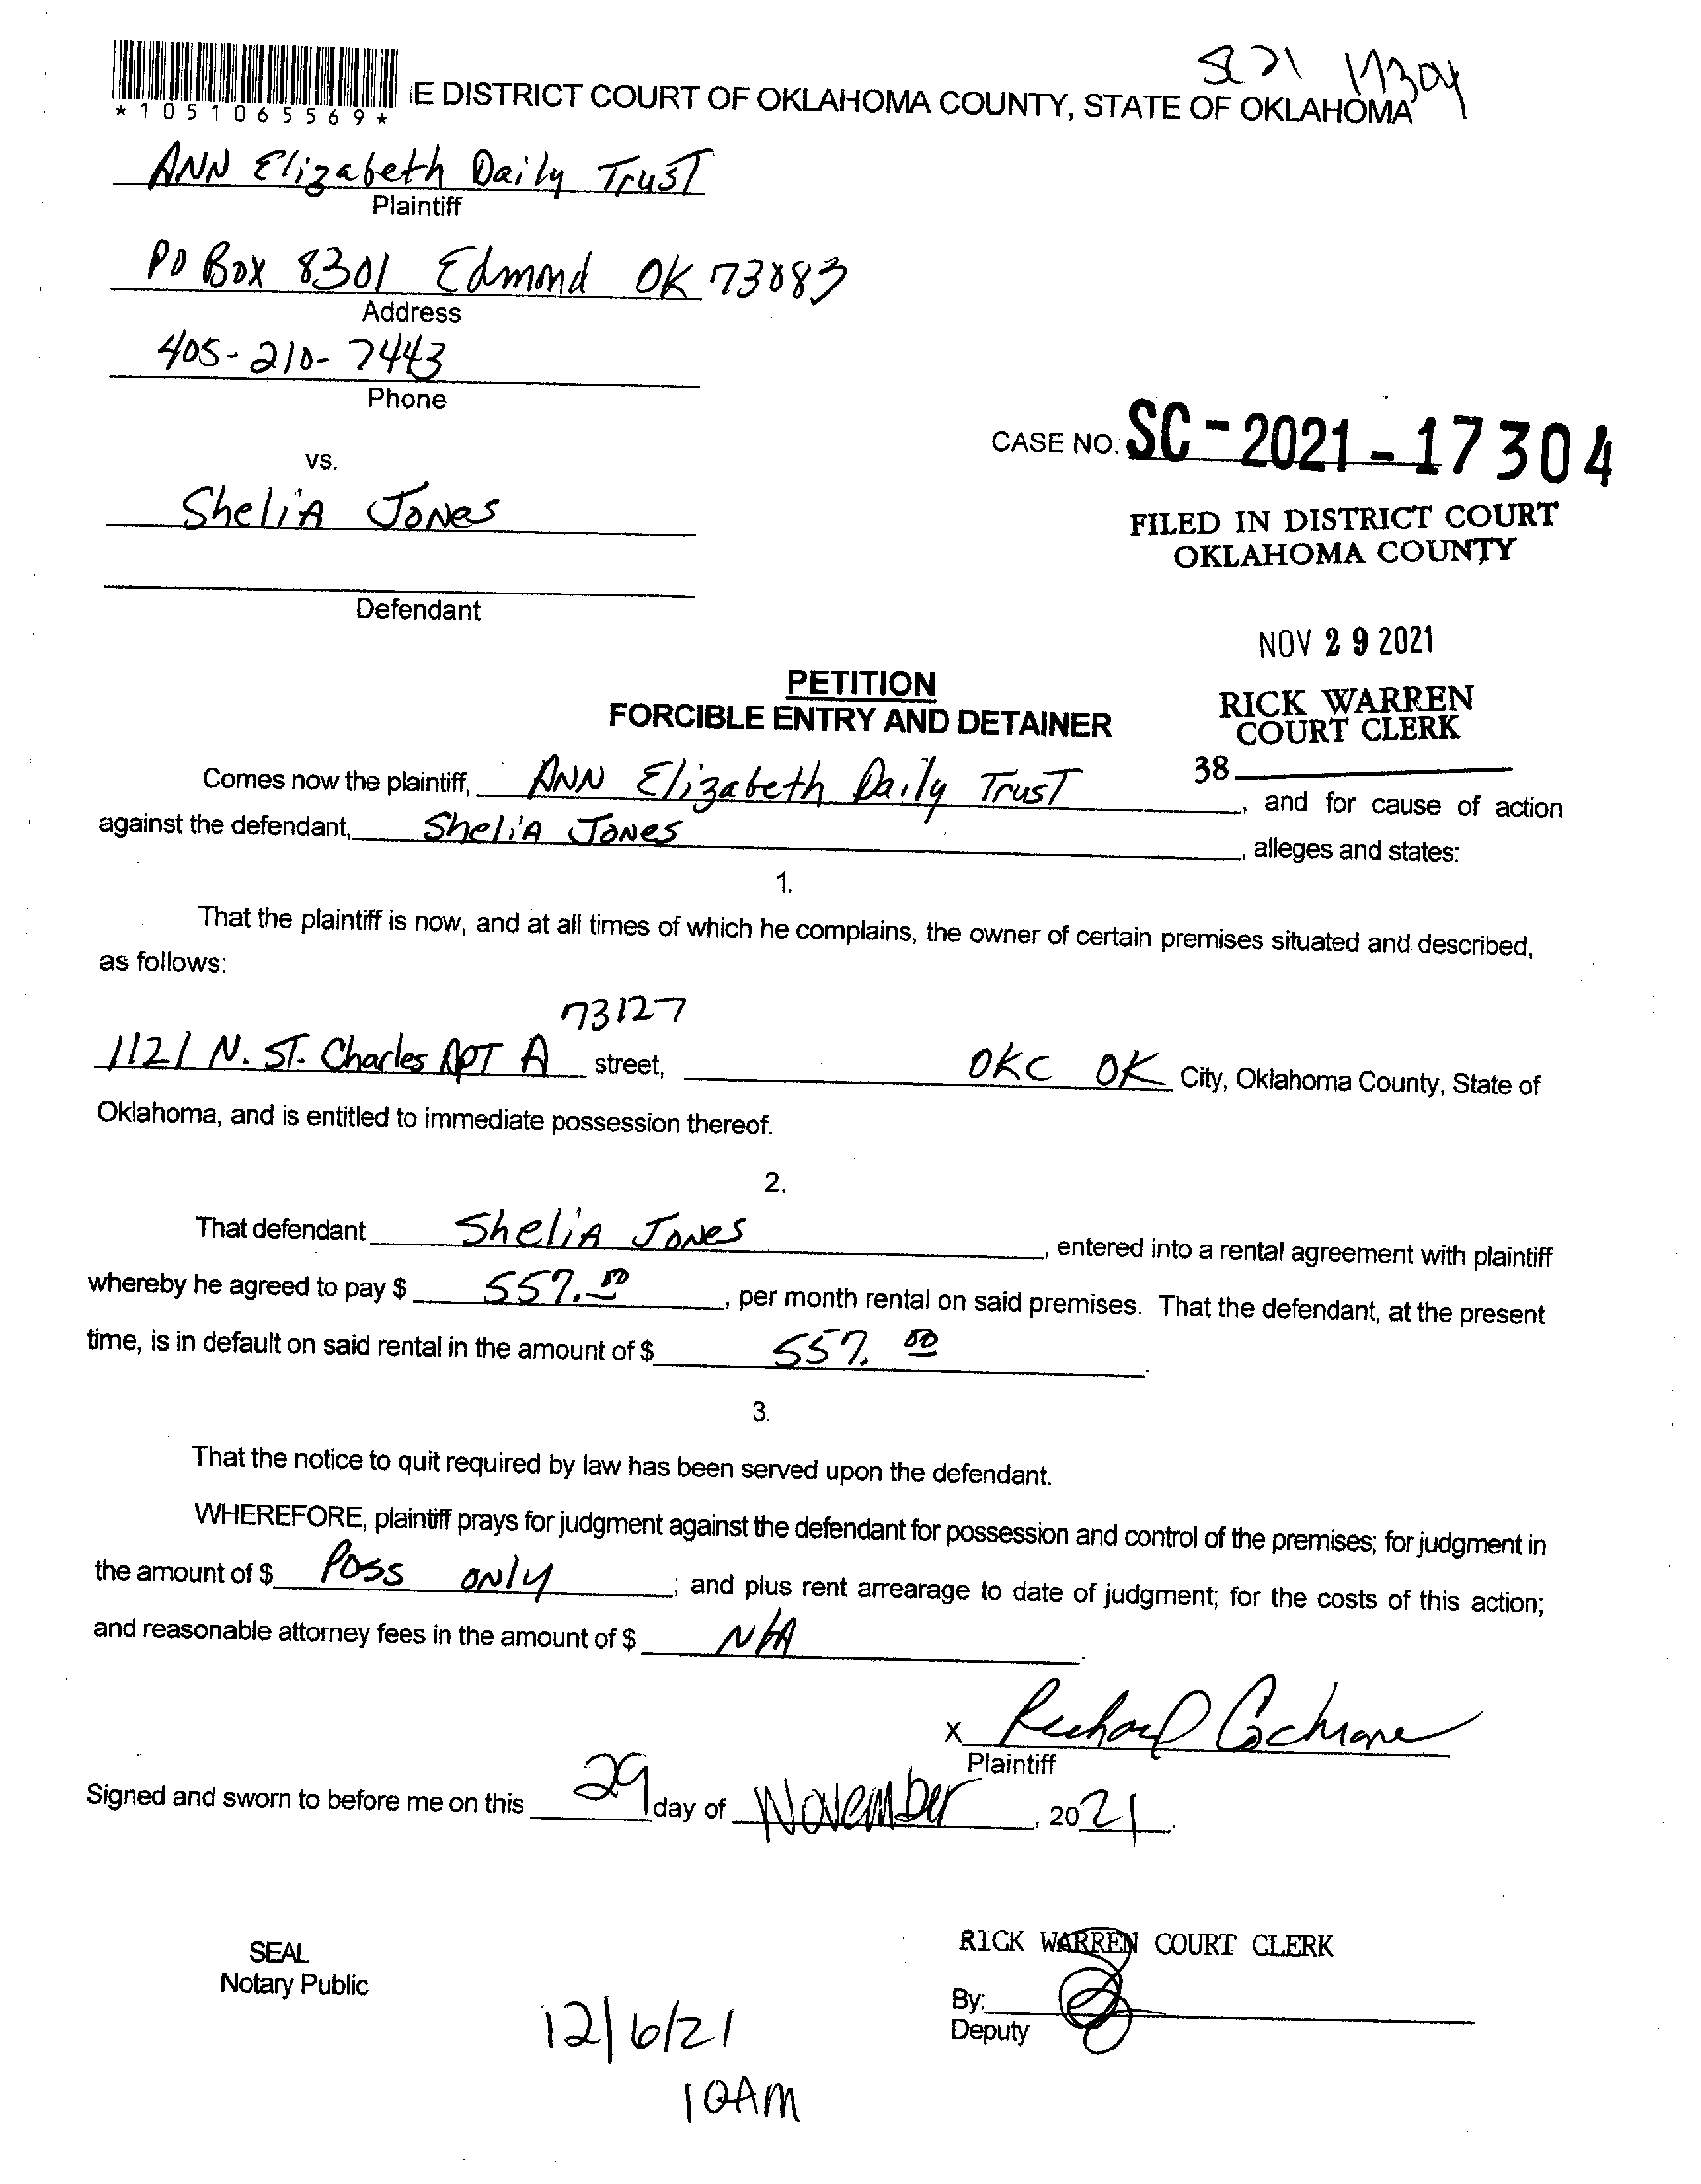 SC 21 17304
*1051065569*
E DISTRICT COURT OF OKLAHOMA COUNTY, STATE OF OKLAHOMA
ANN Elizabeth Daily Trust
Plaintiff
PO Box 8301 Edmond OK 73083
Address
405-210-7443
Phone
CASE NO. SC-2021-17304
vs.
SheliA JoNes
FILED IN DISTRICT COURT
OKLAHOMA COUNTY
Defendant
NOV 29 2021
PETITION
FORCIBLE ENTRY AND DETAINER
RICK WARREN
COURT CLERK
38
Comes now the plaintiff, ANN Elizabeth Daily Trust, and for cause of action
against the defendant, SheliA JoNes, alleges and states:
1.
That the plaintiff is now, and at all times of which he complains, the owner of certain premises situated and described,
as follows:
73127
1121 N. ST. Charles APT A street, OKC OK City, Oklahoma County, State of
Oklahoma, and is entitled to immediate possession thereof.
2.
That defendant SheliA JoNes, entered into a rental agreement with plaintiff
whereby he agreed to pay $ 557.00, per month rental on said premises. That the defendant, at the present
time, is in default on said rental in the amount of $ 557.00.
3.
That the notice to quit required by law has been served upon the defendant.
WHEREFORE, plaintiff prays for judgment against the defendant for possession and control of the premises; for judgment in
the amount of $ Poss ONly; and plus rent arrearage to date of judgment; for the costs of this action;
and reasonable attorney fees in the amount of $ N/A.
X Richard Cochrane
Plaintiff
Signed and sworn to before me on this 29 day of November, 2021.
RICK WARREN COURT CLERK
SEAL
Notary Public
By:
Deputy
12/6/21
10AM